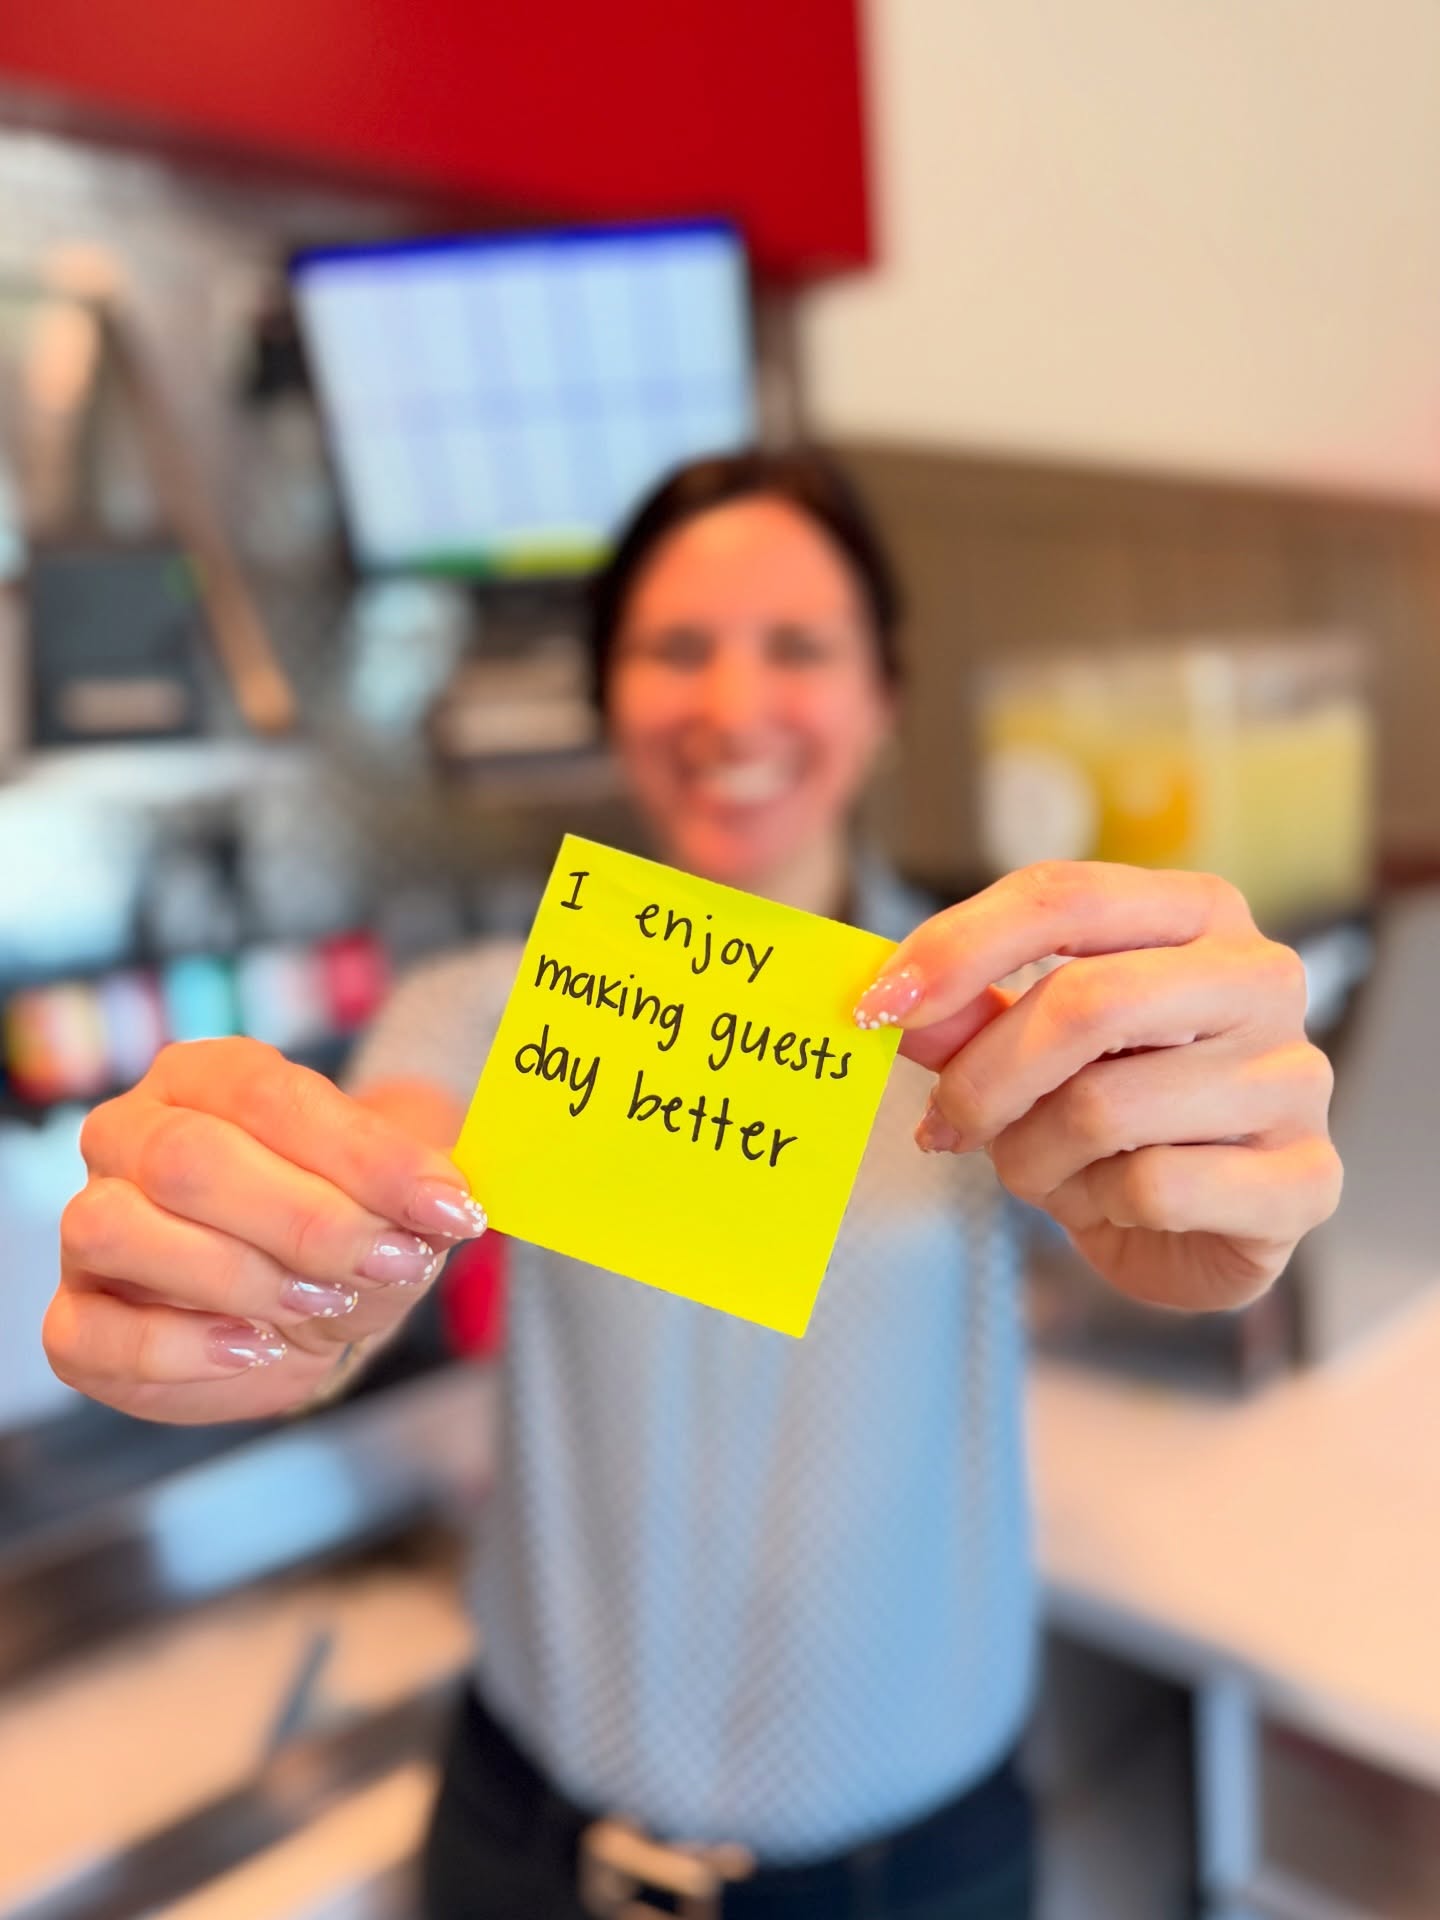 I enjoy
making guests
day better